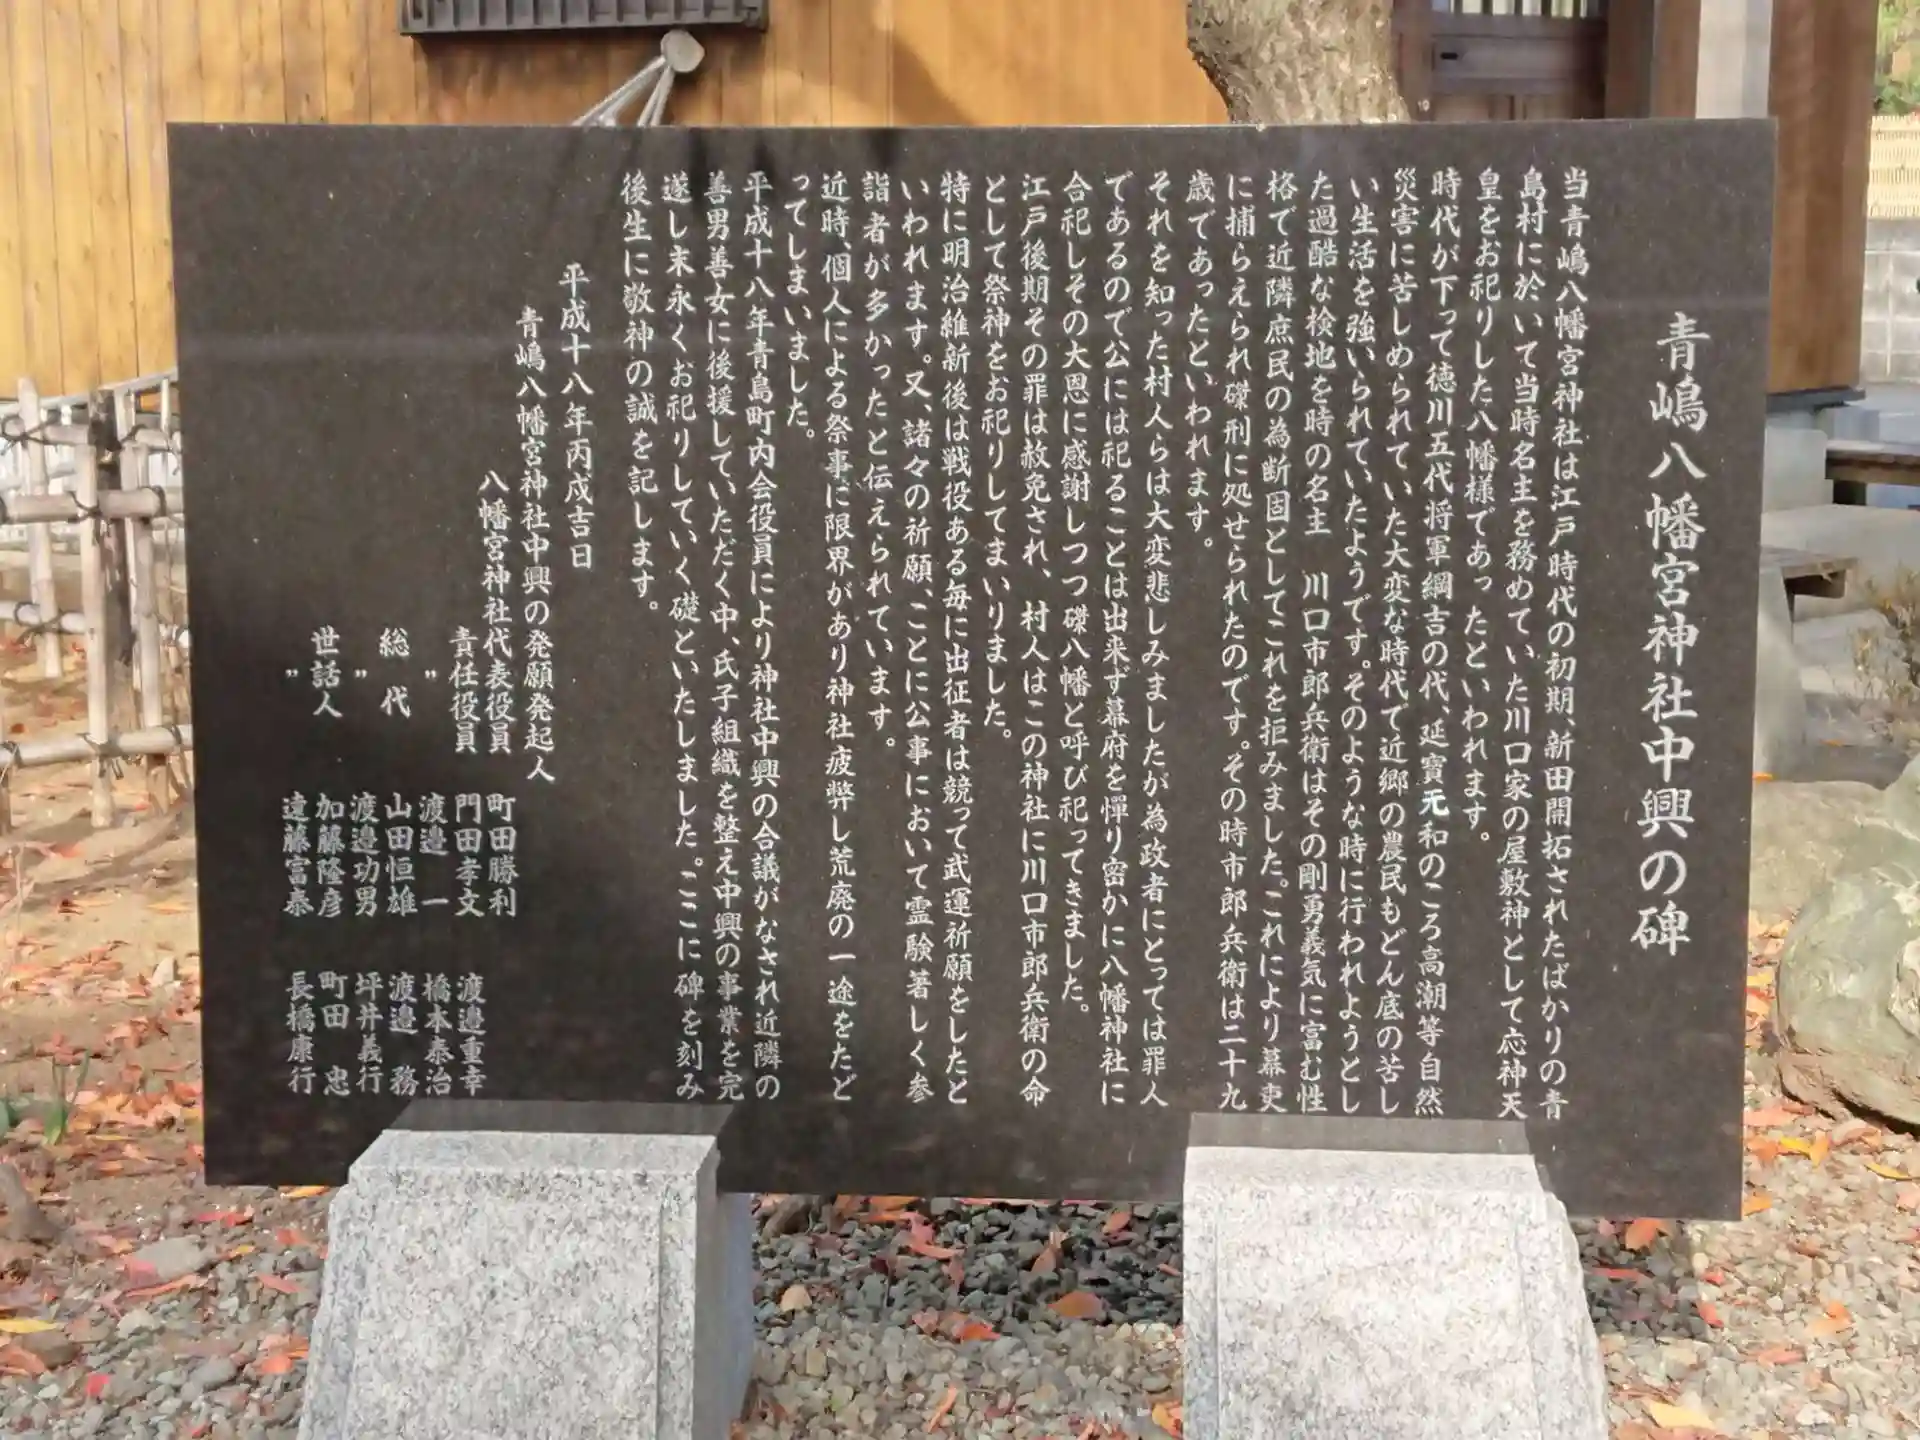 青嶋八幡宮神社中興の碑
当青嶋八幡宮神社は江戸時代の初期、新田開拓されたばかりの青
島村に於いて当時名主を務めていた川口家の屋敷神として応神天
皇をお祀りした八幡様であったといわれます。
時代が下って徳川五代将軍綱吉の代、延寳元和のころ高潮等自然
災害に苦しめられていた大変な時代で近郷の農民もどん底の苦し
い生活を強いられていたようです。そのような時に行われようとし
た過酷な検地を時の名主　川口市郎兵衛はその剛勇義気に富む性
格で近隣庶民の為断固としてこれを拒みました。これにより幕吏
に捕らえられ磔刑に処せられたのです。その時市郎兵衛は二十九
歳であったといわれます。
それを知った村人らは大変悲しみましたが為政者にとっては罪人
であるので公には祀ることは出来ず幕府を憚り密かに八幡神社に
合祀しその大恩に感謝しつつ磔八幡と呼び祀ってきました。
江戸後期その罪は赦免され、村人はこの神社に川口市郎兵衛の命
として祭神をお祀りしてまいりました。
特に明治維新後は戦役ある毎に出征者は競って武運祈願をしたと
いわれます。又、諸々の祈願、ことに公事において霊験著しく参
詣者が多かったと伝えられています。
近時、個人による祭事に限界があり神社疲弊し荒廃の一途をたど
ってしまいました。
平成十八年青島町内会役員により神社中興の合議がなされ近隣の
善男善女に後援していただく中、氏子組織を整え中興の事業を完
遂し末永くお祀りしていく礎といたしました。ここに碑を刻み
後生に敬神の誠を記します。
平成十八年丙戌吉日
青嶋八幡宮神社中興の発願発起人
八幡宮神社代表役員　町田勝利
責任役員　門田孝文　渡邉重幸
〃　渡邉一　橋本泰治
総代　山田恒雄　渡邉務
〃　渡邉功男　坪井義行
世話人　加藤隆彦　町田忠
〃　遠藤富泰　長橋康行